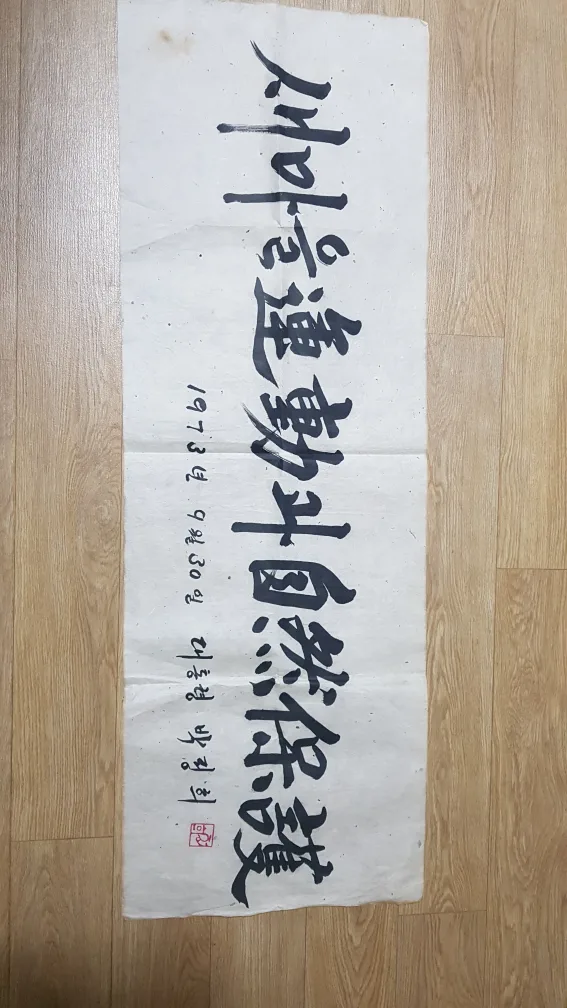 새마음運動과自然保護
1973년 9월30일 대통령 박정희